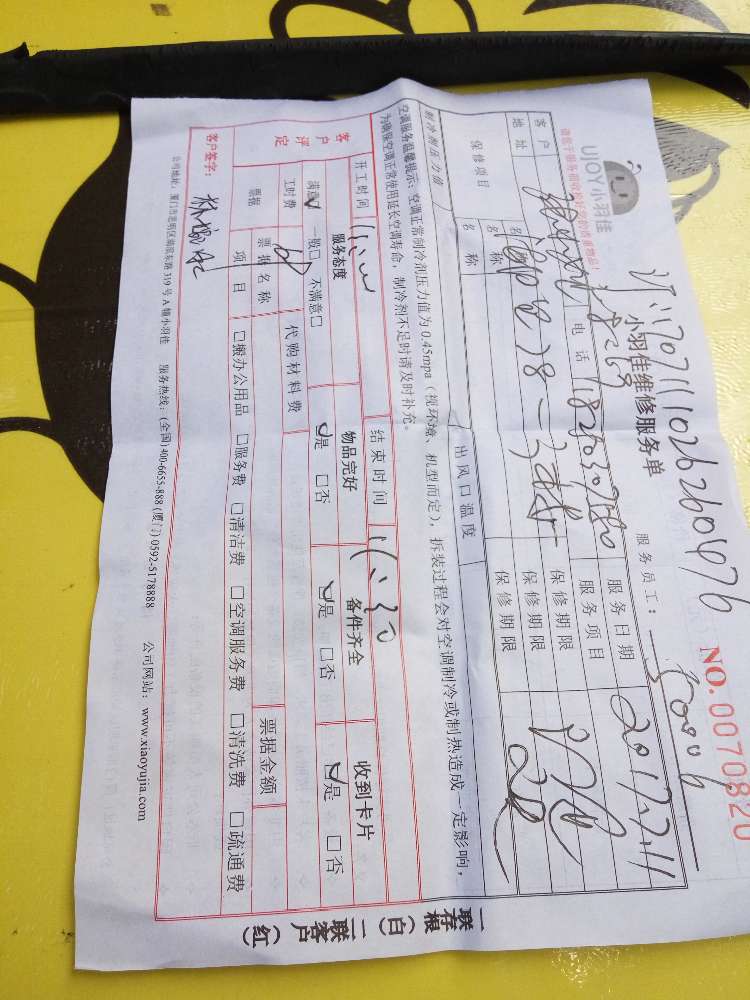 UJOY小羽佳
请在于服务前收捡好您的贵重物品!
小羽佳维修服务单
NO. 0070820
服务员工:
客户
电话
服务日期 2017.7.11
地址
服务项目
保修项目
名称
保修期限
名称
保修期限
制冷剂压力值
出风口温度
空调服务温馨提示:空调正常制冷剂压力值为0.45mpa(视环境、机型而定),拆装过程会对空调制冷或制热造成一定影响,
为确保空调正常使用延长空调寿命,制冷剂不足时请及时补充。
开工时间
结束时间
客户评定
服务态度 物品完好 备件齐全 收到卡片
满意☑ 一般□ 不满意□ ☑是 □否 ☑是 □否 ☑是 □否
工时费
代购材料费
票据
票据名称
票据金额
项目 □搬办公用品 □服务费 □清洁费 □空调服务费 □清洗费 □疏通费
客户签字:
公司地址:厦门市思明区湖滨东路319号A幢小羽佳 服务热线:(全国)400-6655-888 (厦门)0592-5178888 公司网站:www.xiaoyujia.com
一联存根(白) 二联客户(红)